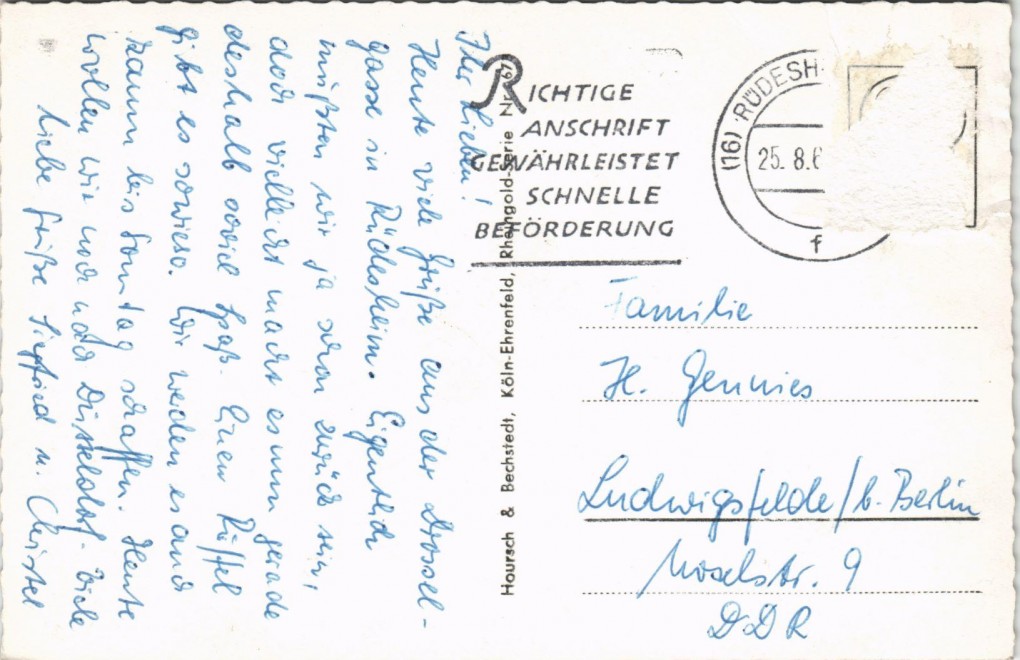 Ihr Lieben!
Heute viele Grüße aus der Drossel-
gasse in Rüdesheim. Eigentlich
müßten wir ja schon zurück sein,
doch vielleicht macht es uns gerade
deshalb soviel Spaß. Einen Rüffel
gibt es sowieso. Wir werden es auch
kaum bis Sonntag schaffen. Heute
wollen wir noch nach Düsseldorf. Viele
liebe Grüße Siegfried u. Christel
Hoursch & Bechstedt, Köln-Ehrenfeld, Rheingold-Serie
RICHTIGE
ANSCHRIFT
GEWÄHRLEISTET
SCHNELLE
BEFÖRDERUNG
(16) RÜDESH
25. 8. 6
f
Familie
H. Gennies
Ludwigsfelde/b. Berlin
Moselstr. 9
DDR